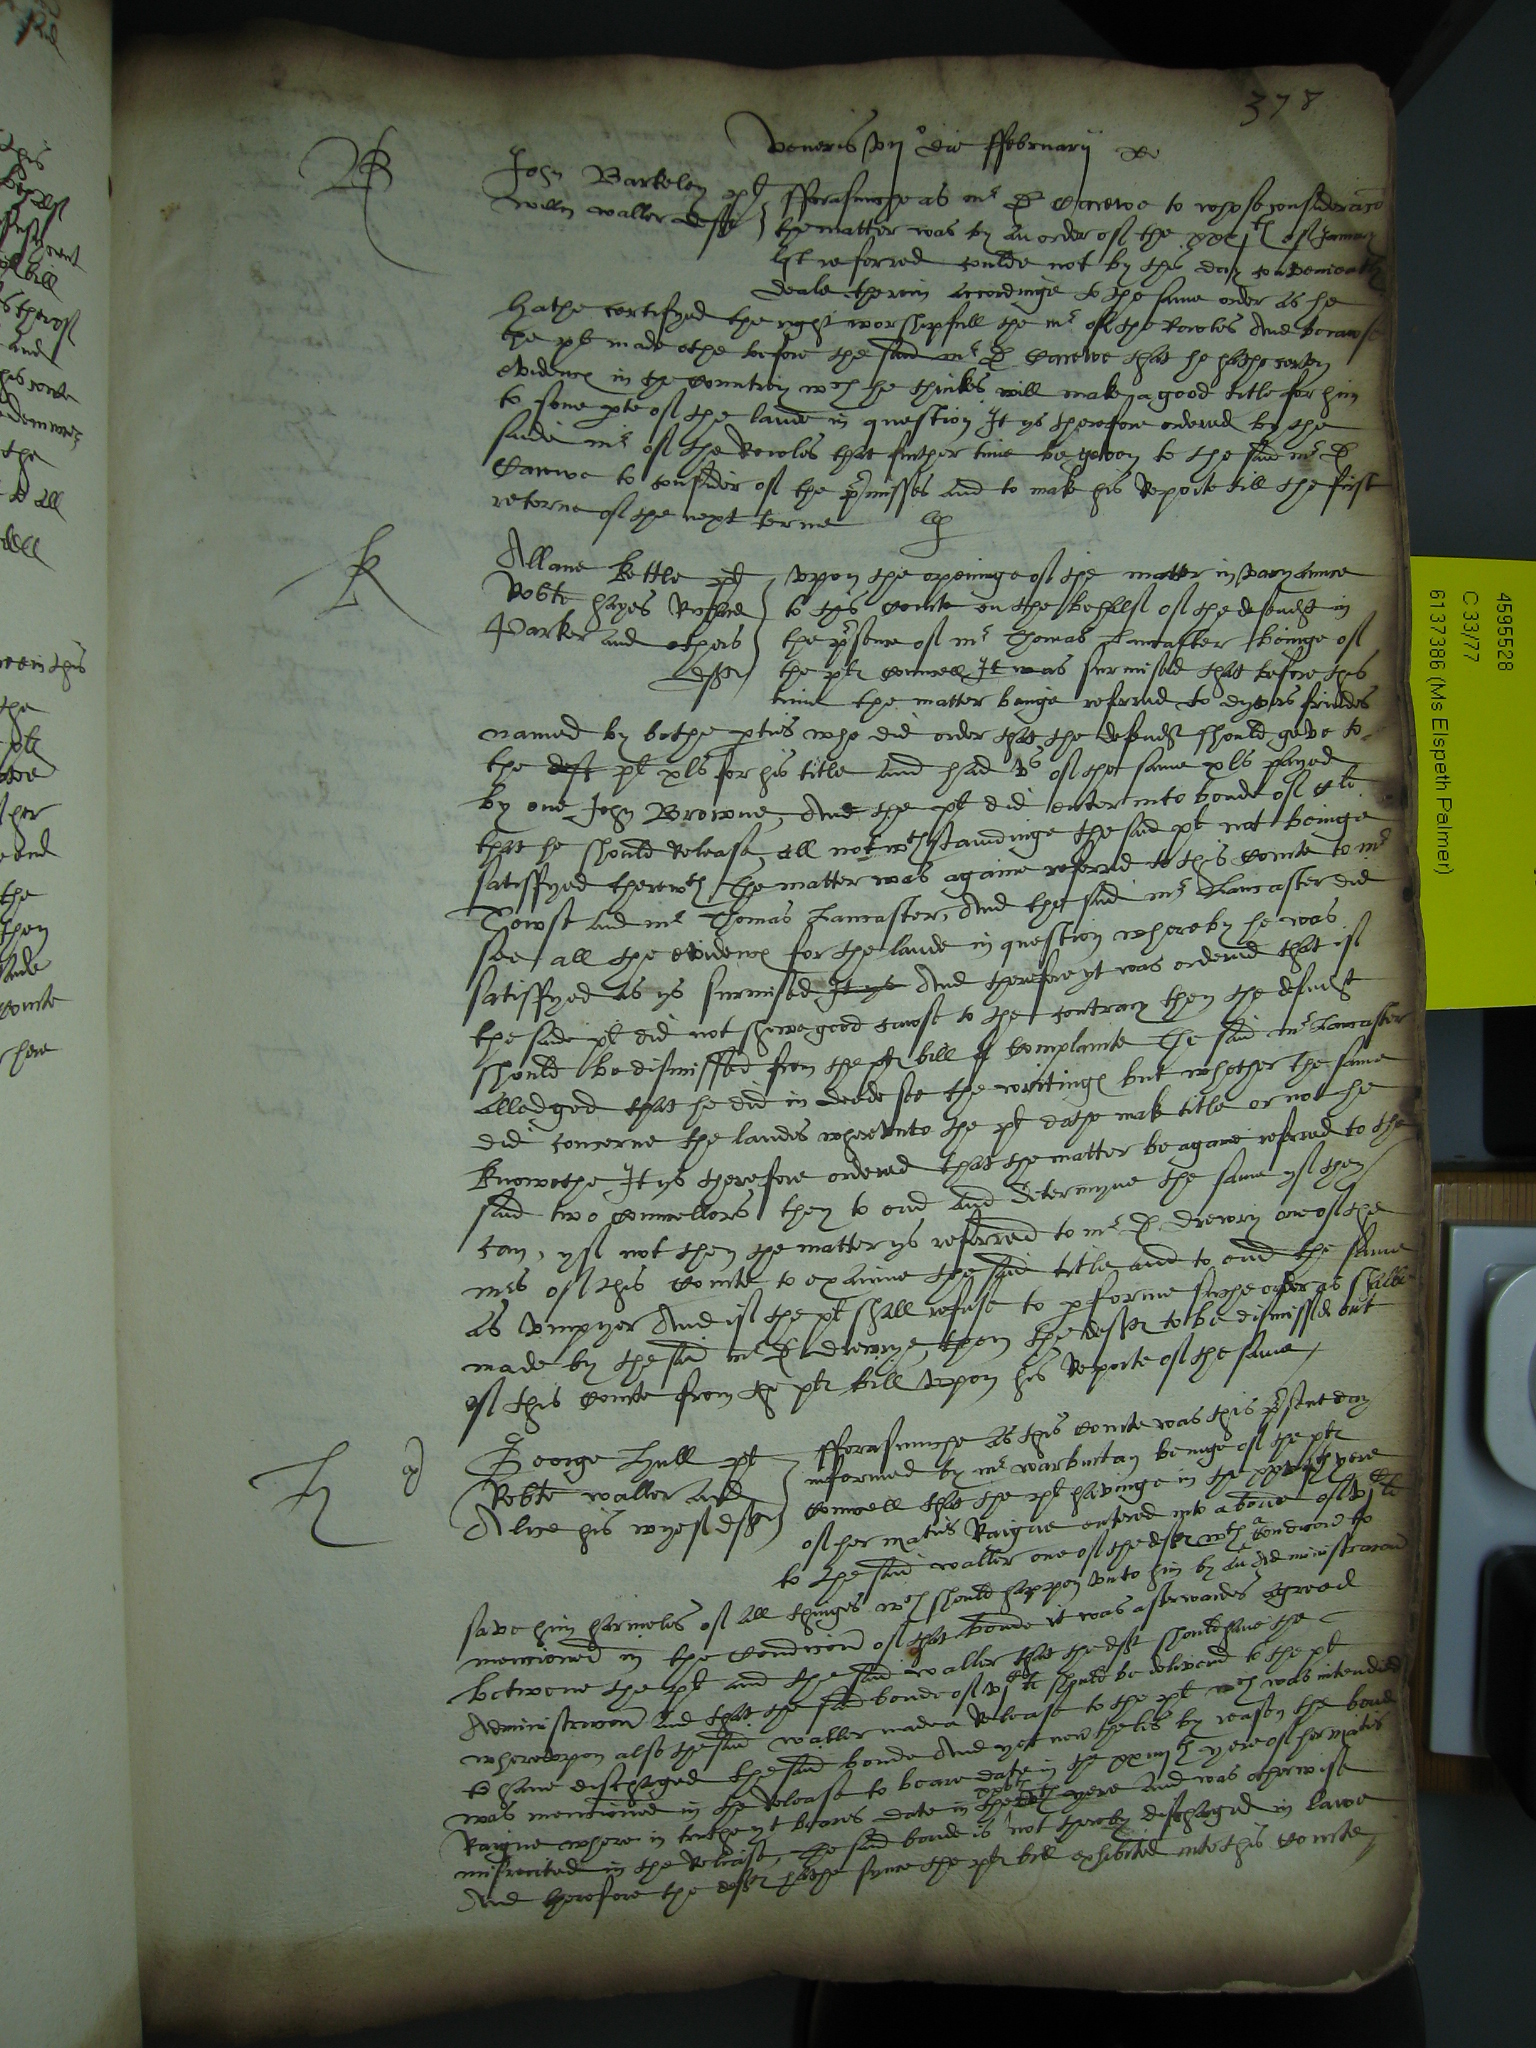 378
veneris vij° die ffebruarij
B
John Barkeley pl
Willm Waller deft
fforasmuche as mr D Carewe to whose consideracon
the matter was by an order of the xxxjth of January
last referred coulde not by this day convenientlie
deale therein accordinge to the same order as he
hathe certifyed the right worshipfull the mr of the Rowles And because
the pl made othe before the said mr D Carewe that he hathe certen
evidence in the countrey wch he thinkes will make a good title for him
to some pte of the lande in question It ys therefore ordered by the
saide mr of the Rowles that further time be geven to the said mr D
Carewe to consider of the pmisses and to make his Reporte till the first
retorne of the next terme
K
Allane Kettle pl
Robte hayes Richard
Parker and others
defts
Upon the openinge of the matter in varyaunce
to this Courte on the behalfe of the defendts in
the psence of mr Thomas Lancaster beinge of
the pls Councell It was surmised that before this
time the matter beinge referred to dyvers friendes
named by bothe pties who did order that the defendt should geve to
the deft pl xls for his title and had vs of the same xls payed
by one John Browne, And the pl did enter into bonde of
that he should Release, all notwthstandinge the said pl not beinge
satisfyed therewth The matter was againe referred to this Courte to mr
Towse and mr Thomas Lancaster, And the said mr Lancaster did
see all the evidence for the lande in question whereby he was
satisfyed as ys surmised It ys And therefore yt was ordered that if
the saide pl did not shewe good cawse to the contrary then the defendt
should be dismissed from the pls bill of Complainte The said mr Lancaster
alledged that he did in deede see the writinges but whether the same
did concerne the landes whereunto the pl dothe mak title or not he
knowethe It ys therefore ordered that the matter be againe referred to the
said two councellors they to end and determyne the same yf they
can, yf not then the matter ys referred to mr D Drewry one of the
mrs of this Courte to examine the said title and to end the same
as Umpyer And if the pl shall refuse to pforme suche order as shalbe
made by the said mr D Drewrye, then the defts to be dismissed out
of this Courte from the pls bill Upon his Reporte of the same
H
George Hull pl
Robte Waller and
Alice his wyef defts
fforasmuche as this Courte was this psent day
informed by mr Warburtan beinge of the pls
Councell that the pl havinge in the yere
of her maties Raigne entered into a bonde of
to the said Waller one of the defts wth a Condicion to
save him harmeles of all thinges wch should happen unto him by an Administracon
mencioned in the Condicion of that bonde it was afterwardes agreed
betwene the pl and the said Waller that the deft should have the
Administracon And that the said bonde of should be delivered to the pl
whereupon also the said Waller made a Release to the pl wch was intended
to have discharged the said bonde And yet nevertheles by reason the bonde
was mencioned in the Release to beare date in the yere of her maties
Raigne where in truthe yt beares date in the yere And was otherwise
misrecited in the Release, The said bonde is not thereby discharged in lawe
And therefore the defts hathe synce the pls bill exhibited into this Courte
4595528
C 33/77
6137386 (Ms Elspeth Palmer)